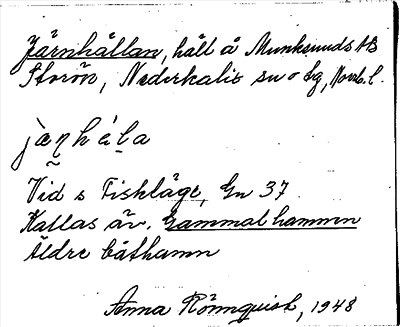 Järnhällan, häll å Munksunds AB
Storön, Nederkalix sn o sg, Norrb. l.
jæṇhɛ́l̥a
Vid s Fiskläge, Gn 37
Kallas äv. Gammalhamnen
Äldre båthamn
Anna Rönnquist, 1948